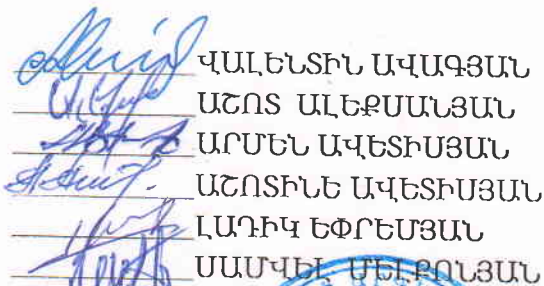 ՎԱԼԵՆՏԻՆ ԱՎԱԳՅԱՆ
ԱՇՈՏ ԱԼԵՔՍԱՆՅԱՆ
ԱՐՄԵՆ ԱՎԵՏԻՍՅԱՆ
ԱՇՈՏԻՆԵ ԱՎԵՏԻՍՅԱՆ
ԼԱԴԻԿ ԵՓՐԵՄՅԱՆ
ՍԱՄՎԵԼ ՄԵԼՔՈՆՅԱՆ